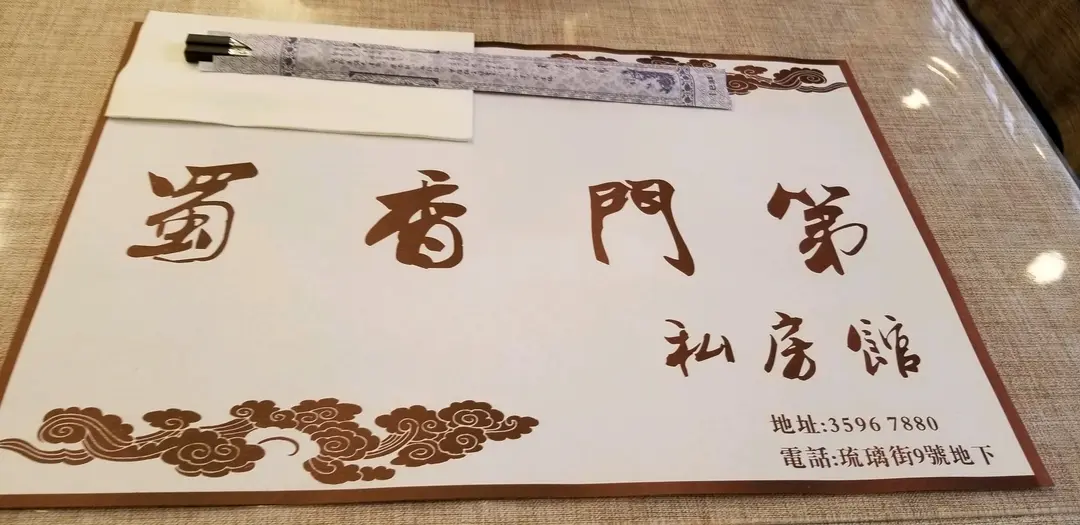 蜀香門第
私房館
地址:3596 7880
電話:琉璃街9號地下